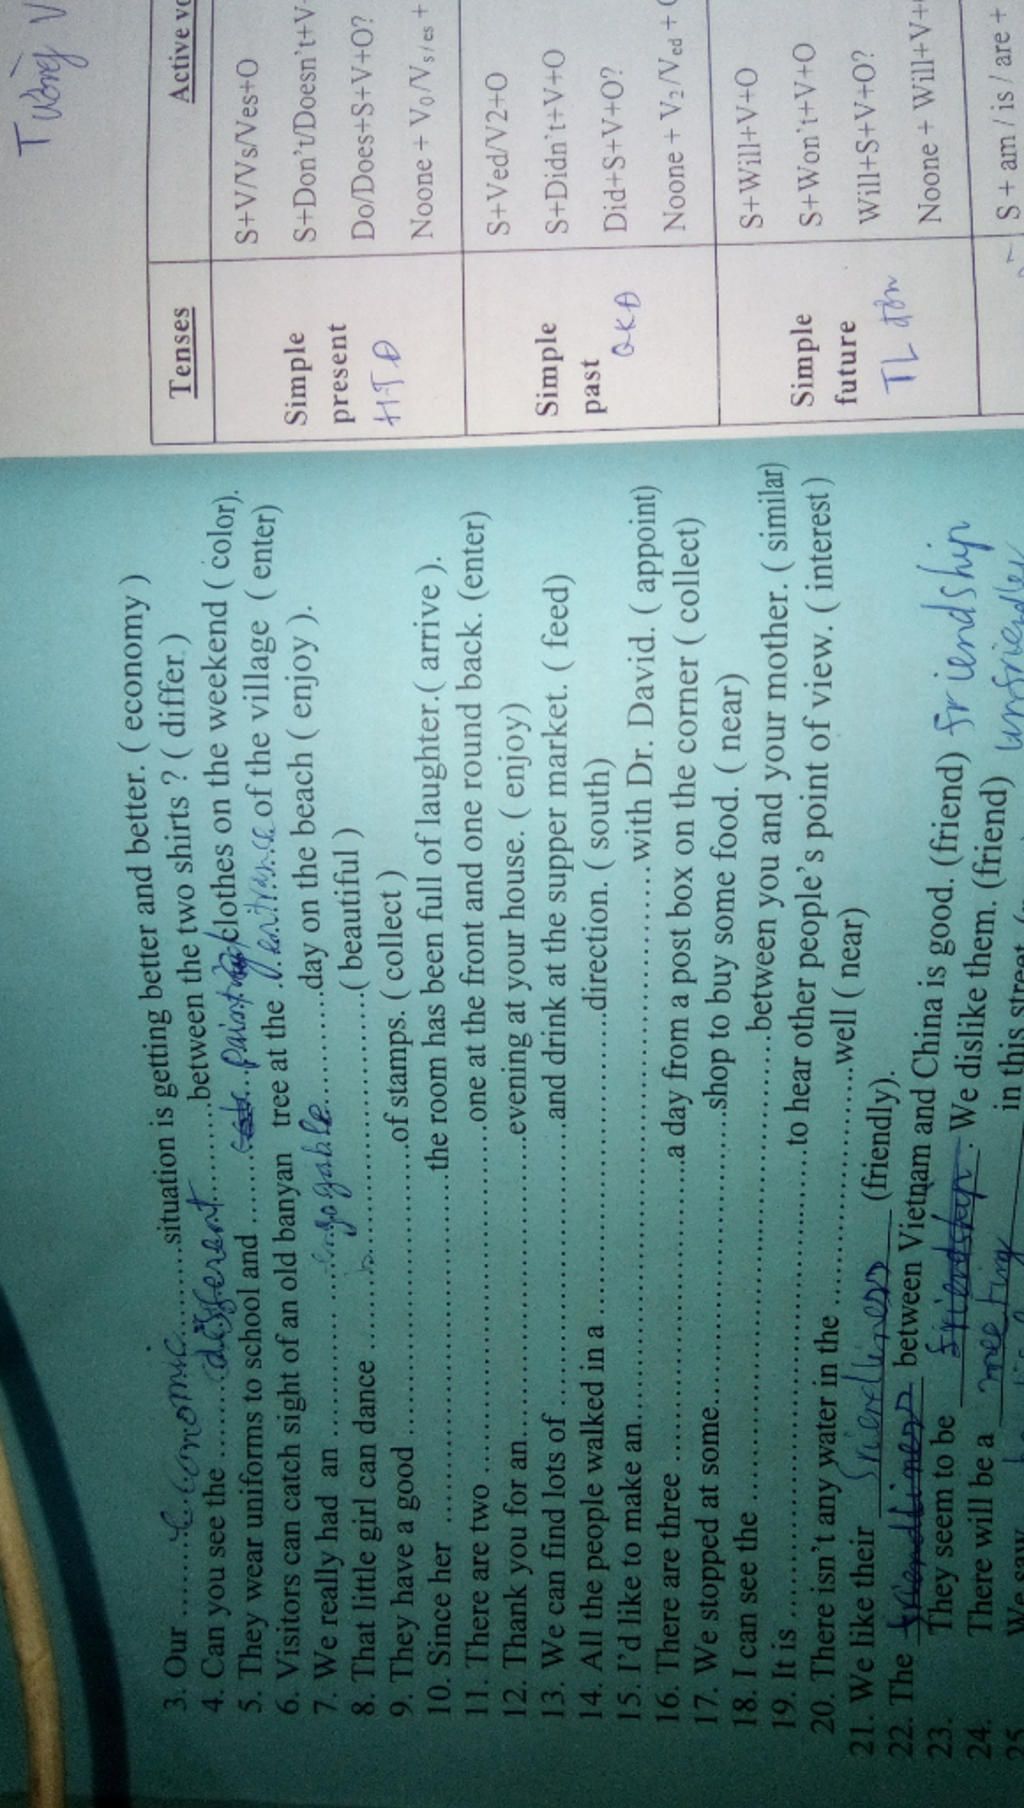 3. Our ....... economic ....... situation is getting better and better. ( economy )
4. Can you see the ....... different ....... between the two shirts ? ( differ )
5. They wear uniforms to school and ....... clothes on the weekend ( color).
6. Visitors can catch sight of an old banyan tree at the ..entrance of the village ( enter)
7. We really had an ....... day on the beach ( enjoy ).
8. That little girl can dance ....... ( beautiful )
9. They have a good ....... of stamps. ( collect )
10. Since her ....... the room has been full of laughter.( arrive ).
11. There are two ....... one at the front and one round back. (enter)
12. Thank you for an....... evening at your house. ( enjoy)
13. We can find lots of ....... and drink at the supper market. ( feed)
14. All the people walked in a ....... direction. ( south)
15. I'd like to make an....... with Dr. David. ( appoint)
16. There are three ....... a day from a post box on the corner ( collect)
17. We stopped at some....... shop to buy some food. ( near)
18. I can see the ....... between you and your mother. ( similar)
19. It is ....... to hear other people's point of view. ( interest)
20. There isn't any water in the ....... well ( near)
21. We like their friendliness (friendly).
22. The friendliness between Vietnam and China is good. (friend) friendship
23. They seem to be friendship . We dislike them. (friend) unfriendly
24. There will be a meeting in this street
25. We saw
T Vòng V
Tenses Active vo
Simple present HTĐ
S+V/Vs/Ves+O
S+Don't/Doesn't+V
Do/Does+S+V+O?
Noone + V0/Vs/es +
Simple past QKĐ
S+Ved/V2+O
S+Didn't+V+O
Did+S+V+O?
Noone + V2/Ved +
Simple future TL đơn
S+Will+V+O
S+Won't+V+O
Will+S+V+O?
Noone + Will+V+
S + am / is / are +